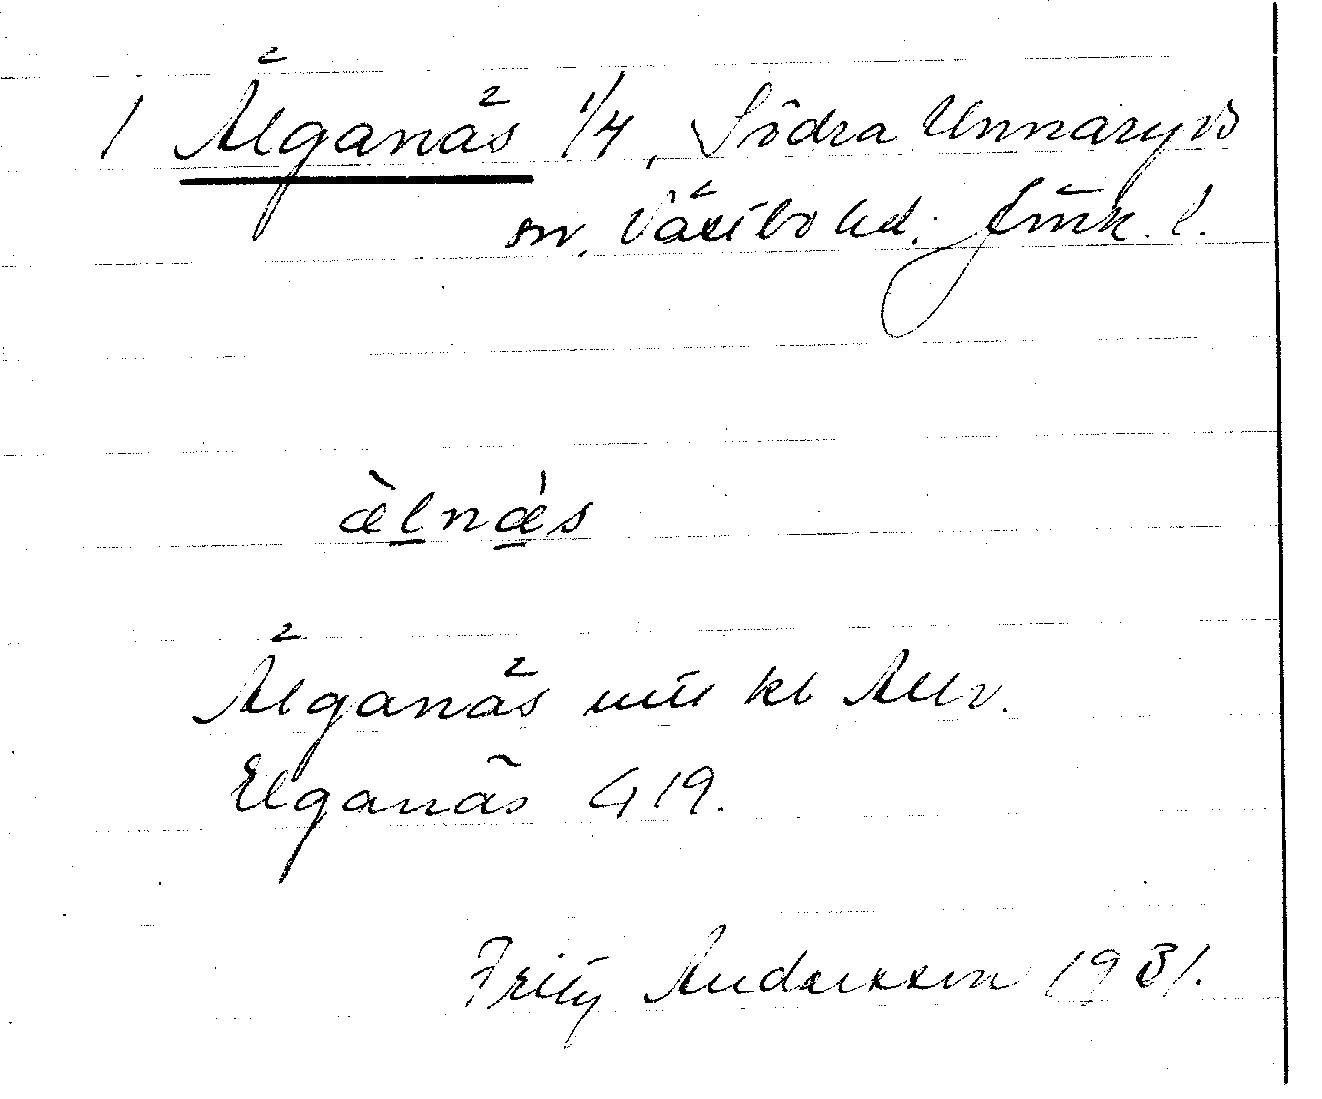 1 Älganäs 1/4, Södra Unnaryds
sn. Västbo hd. Jönk. l.
æ̀lnæ̀s
Älganäs
Elganäs G 19.
Fritz Andersson 1931.